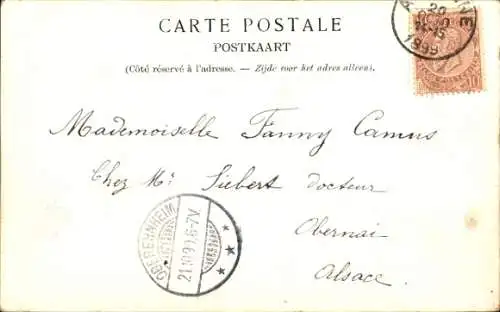 CARTE POSTALE
POSTKAART
(Côté réservé à l'adresse. — Zijde voor het adres alleen).
20
1899
Mademoiselle Fanny Camus
Chez Mr Siebert docteur
Obernai
Alsace.
OBEREHNHEIM
21.10.99. 6-7V.